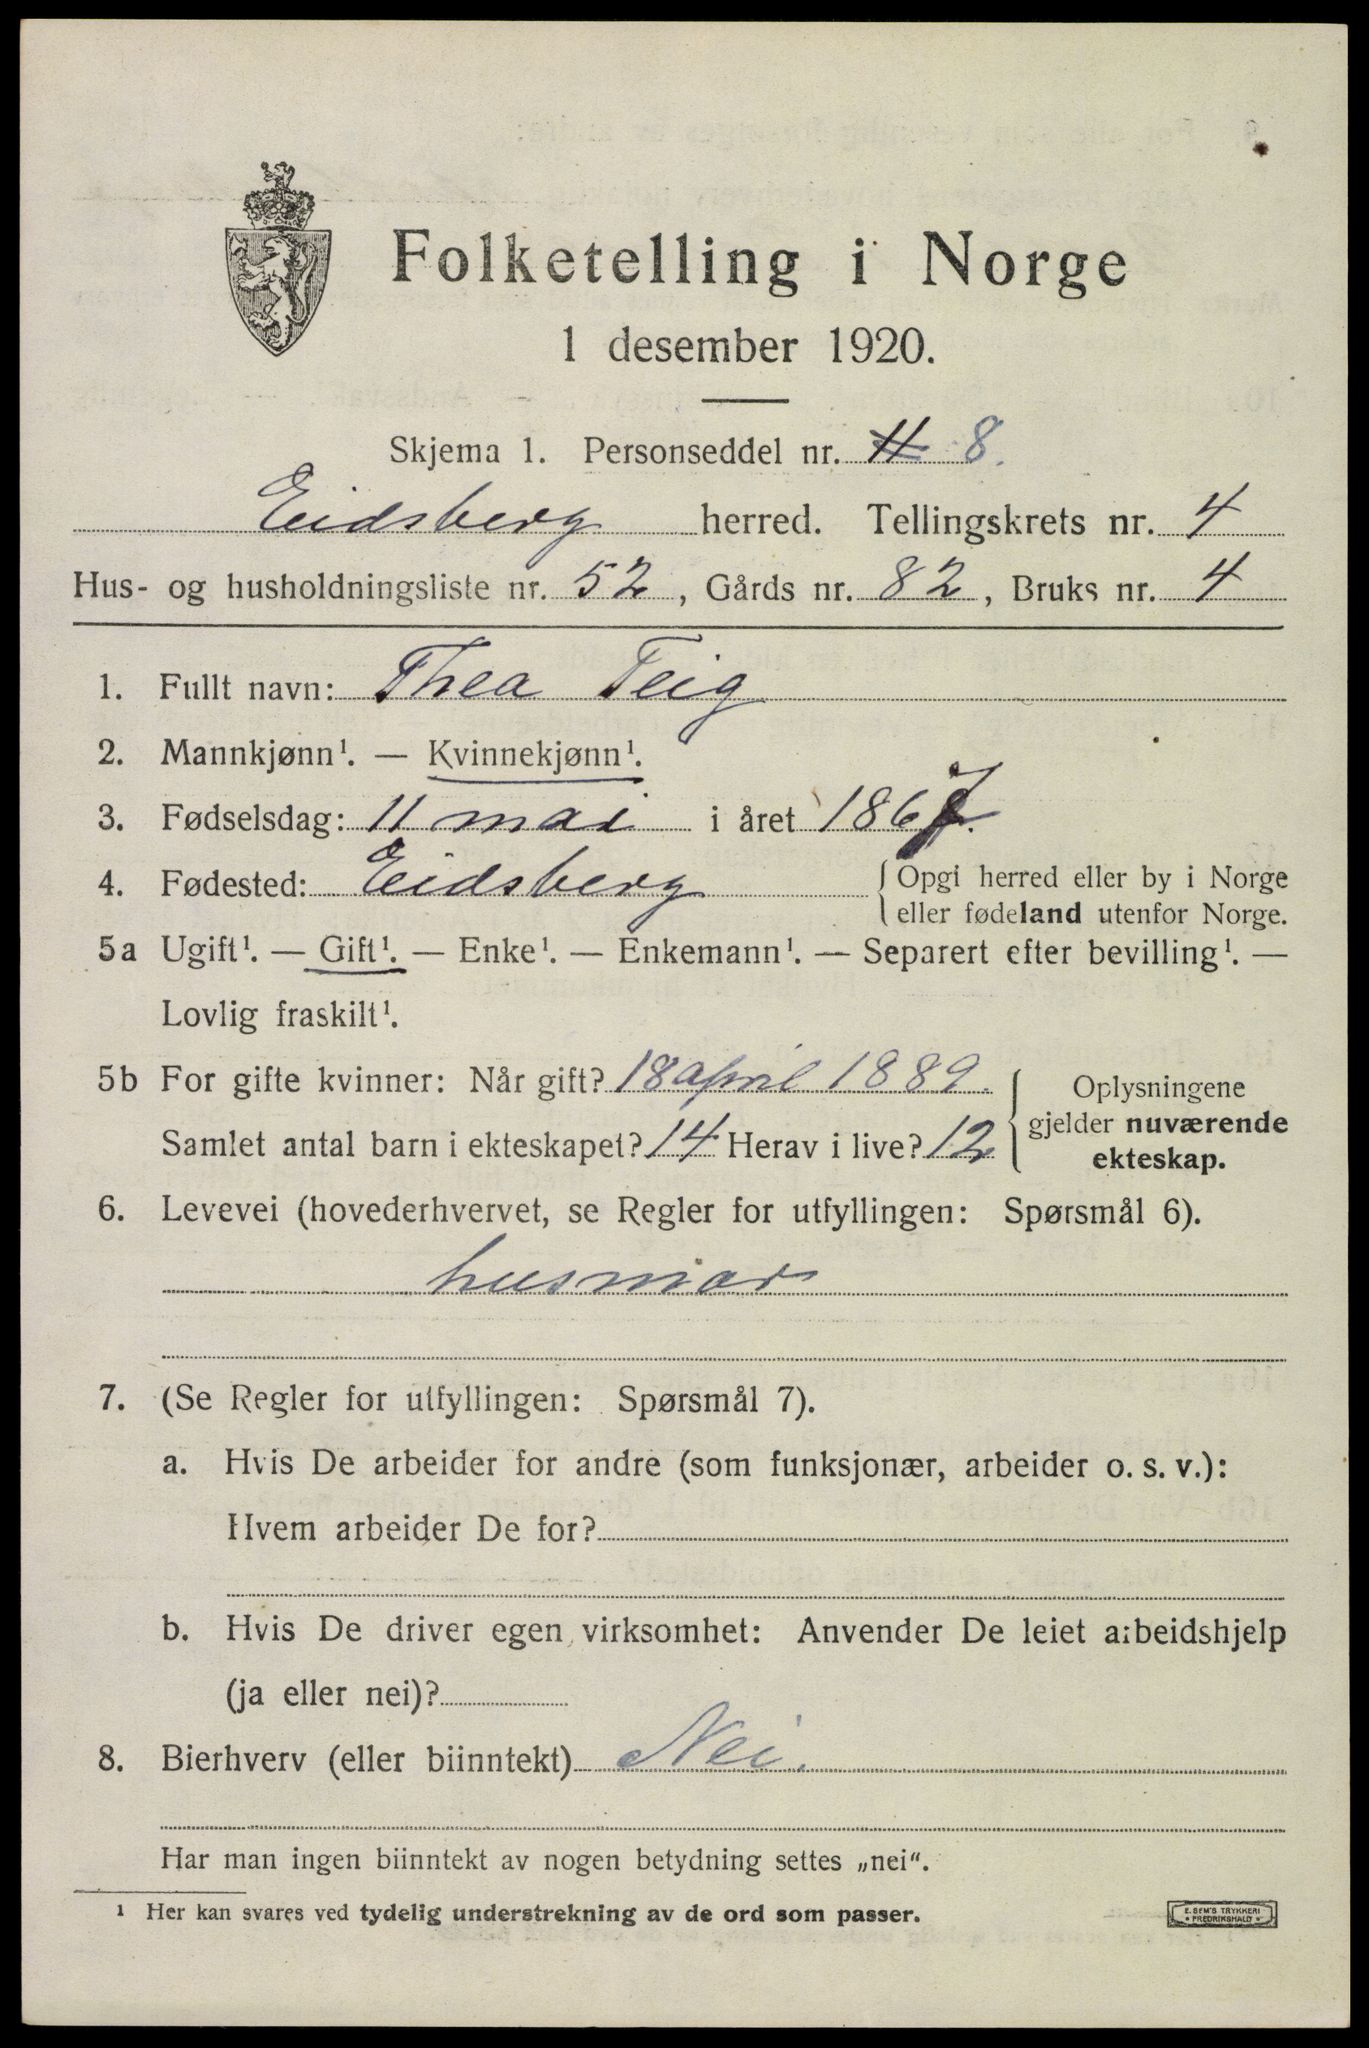 Folketelling i Norge
1 desember 1920.
Skjema 1. Personseddel nr. 11 8.
Eidsberg herred. Tellingskrets nr. 4
Hus- og husholdningsliste nr. 52, Gårds nr. 82, Bruks nr. 4
1. Fullt navn: Thea Teig
2. Mannkjønn¹. — Kvinnekjønn¹.
3. Fødselsdag: 11 mai i året 1867.
4. Fødested: Eidsberg { Opgi herred eller by i Norge
eller fødeland utenfor Norge.
5a Ugift¹. — Gift¹. — Enke¹. — Enkemann¹. — Separert efter bevilling¹. —
Lovlig fraskilt¹.
5b For gifte kvinner: Når gift? 18 april 1889.
Samlet antal barn i ekteskapet? 14 Herav i live? 12
{ Oplysningene
gjelder nuværende
ekteskap.
6. Levevei (hovederhvervet, se Regler for utfyllingen: Spørsmål 6).
husmor
7. (Se Regler for utfyllingen: Spørsmål 7).
a. Hvis De arbeider for andre (som funksjonær, arbeider o. s. v.):
Hvem arbeider De for?
b. Hvis De driver egen virksomhet: Anvender De leiet arbeidshjelp
(ja eller nei)?
8. Bierhverv (eller biinntekt) Nei.
Har man ingen biinntekt av nogen betydning settes „nei“.
¹ Her kan svares ved tydelig understrekning av de ord som passer.
E. SEM'S TRYKKERI
• FREDRIKSHALD •